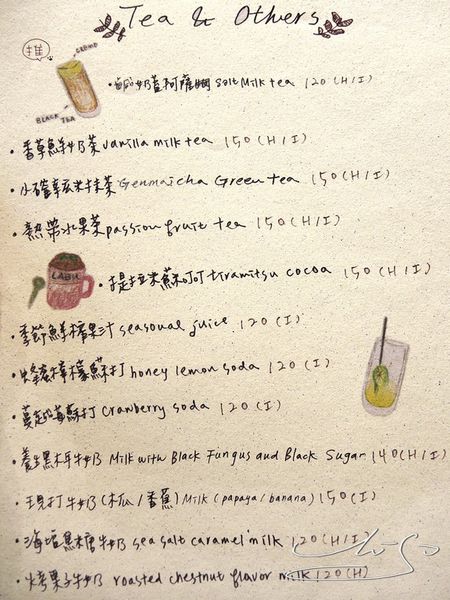 Tea & Others
推
CREMO
BLACK TEA
Salt Milk tea 120 (H/I)
香草鮮奶茶 vanilla milk tea 150 (H/I)
玄米抹茶 Genmaicha Green tea 150 (H/I)
熱帶水果茶 passion fruit tea 150 (H/I)
LABU
提拉米蘇可可 tiramitsu cocoa 150 (H/I)
季節鮮榨果汁 seasonal juice 120 (I)
蜂蜜檸檬蘇打 honey lemon soda 120 (I)
蔓越莓蘇打 Cranberry soda 120 (I)
養生黑木耳牛奶 Milk with Black Fungus and Black Sugar 140 (H/I)
現打牛奶(木瓜/香蕉) Milk (papaya/banana) 150 (I)
海塩焦糖牛奶 sea salt caramel milk 120 (H/I)
烤栗子牛奶 roasted chestnut flavor milk 120 (H)